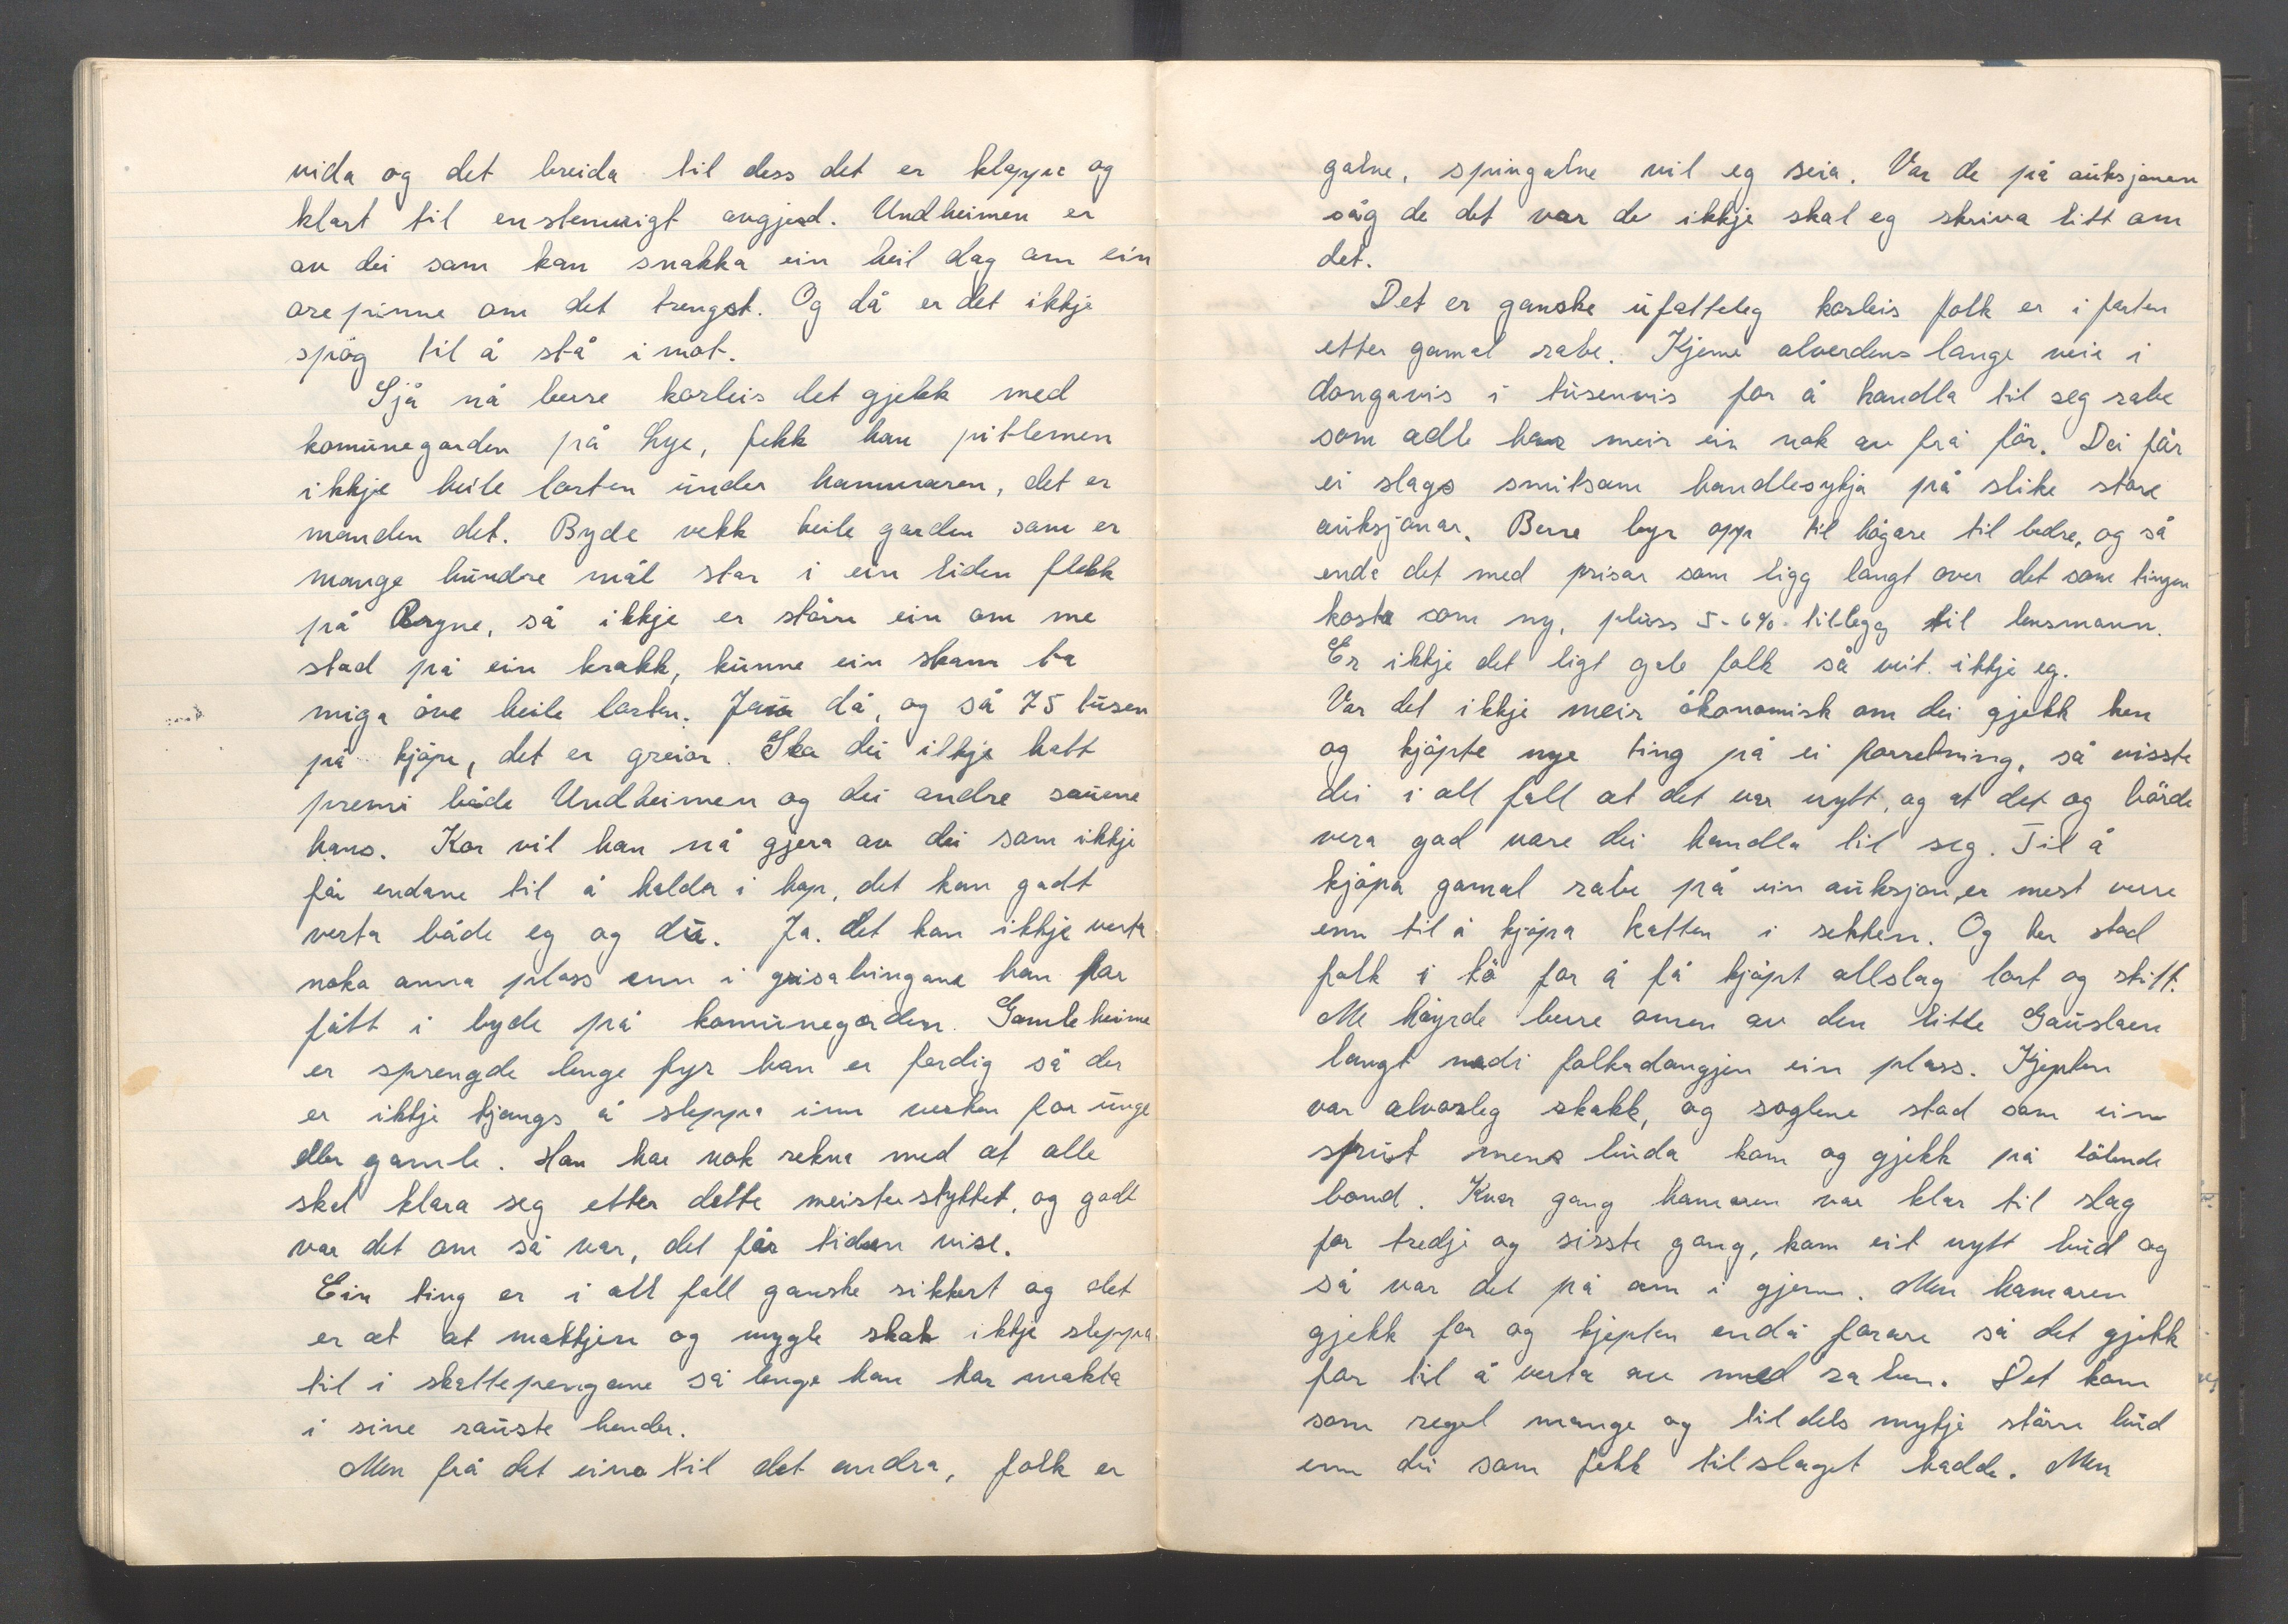 vida og det breida til dess det er klappa og
klart til enstemmigt avgjerd. Undheimen er
av dei som kan snakka ein heil dag om ein
orepinne om det trengst. Og då er det ikkje
spøg til å stå i mot.
Sjå nå berre korleis det gjekk med
komunegarden på Lye, fekk han pitlemen
ikkje heile lorten under hammaren, det er
manden det. Byde vekk heile garden som er
mange hundre mål stor i ein liden flekk
på Bryne, så ikkje er större ein om me
stod på ein krakk, kunne ein skam ta
miga öve heile lorten. Jaua då, og så 75 tusen
på kjöpe, det er greior. Ska dei ikkje hatt
premi både Undheimen og dei andre sauene
hans. Kor vil han nå gjera av dei som ikkje
får endane til å halda i hop, det kan godt
verta både eg og du. Ja. det kan ikkje verta
noka anna plass enn i grisabingane han har
fått i byde på komunegarden. Gamleheime
er sprengde lenge fyr han er ferdig så der
er ikkje kjangs å sleppa inn verken for unge
eller gamle. Han har nok rekna med at alle
skal klara seg etter dette meisterstykket, og godt
var det om så var, det får tiden vise.
Ein ting er i all fall ganske sikkert og det
er at at makkjen og mygle skal ikkje sleppa
til i skattepengane så lenge han har makta
i sine rauste hender.
Men frå det eina til det andra, folk er
galne, spingalne vil eg seia. Var de på auksjonen
såg de det var de ikkje skal eg skriva litt om
det.
Det er ganske ufatteleg korleis folk er i farten
etter gamal rabe. Kjeme alverdens lange veie i
dongavis i tusenvis for å handla til seg rabe
som adle har meir ein nok av frå för. Dei får
ei slags smitsom handlesykja på slike store
auksjonar. Berre byr opp til högare til bedre, og så
enda det med prisar som ligg langt over det som tingen
kosta som ny, pluss 5-6% tillegg til lensmann.
Er ikkje det ligt gale folk så veit ikkje eg.
Var det ikkje meir ökonomisk om dei gjekk hen
og kjöpte nye ting på ei forretning, så visste
dei i all fall at det var nytt, og at det og börde
vera god vare dei handla til seg. Til å
kjöpa gamal rabe på ein auksjon, er mest verre
enn til å kjöpa katten i sekken. Og her stod
folk i kö for å få kjöpt allslag lort og skitt.
Me höyrde berre omen av den litle Gauslaen
langt nedi folkadongjen ein plass. Kjeften
var alvorleg skakk, og soglene stod som ein
sprut mens buda kom og gjekk på löbende
bond. Kvar gang hamaren var klar til slag
for tredje og sisste gong, kom eit nytt bud og
så var det på om i gjenn. Men hamaren
gjekk for og kjeften endå forare så det gjekk
for til å verta av med raben. Det kom
som regel mange og tildels mykje större bud
enn dei som fekk tilslaget hadde. Men